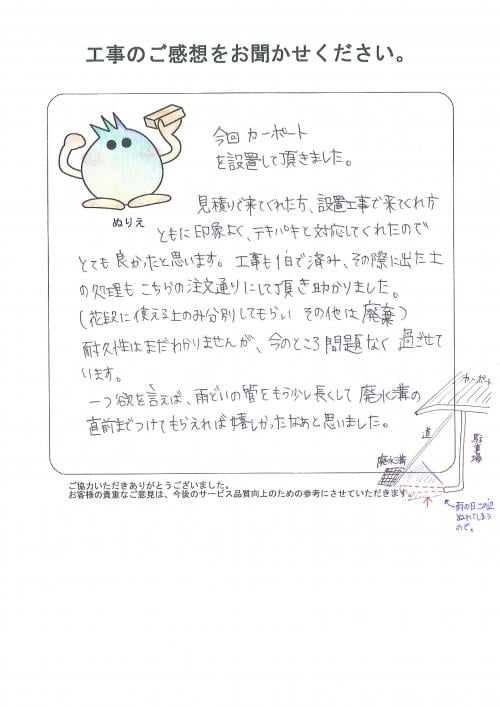 工事のご感想をお聞かせください。
今回 カーポート
を設置して頂きました。
ぬりえ
見積りで来てくれた方、設置工事で来てくれ方
ともに印象よく、テキパキと対応してくれたので
とても良かったと思います。工事も1日で済み、その際に出た土
の処理もこちらの注文通りにして頂き助かりました。
(花段に使える土のみ分別してもらい その他は廃棄)
耐久性はまだわかりませんが、今のところ問題なく過ごせて
います。
一つ欲を言えば、雨どいの管をもう少し長くして廃水溝の
直前までつけてもらえれば嬉しかったなぁと思いました。
カーポート
道
駐車場
廃水溝
雨の日この辺
ぬれてしまう
ので。
ご協力いただきありがとうございました。
お客様の貴重なご意見は、今後のサービス品質向上のための参考にさせていただきます。